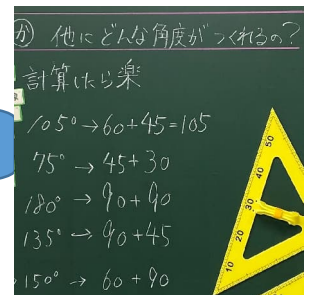 か 他にどんな角度がつくれるの?
計算したら楽
105°→60+45=105
75°→45+30
180°→90+90
135°→90+45
150°→60+90
50
40
30
20
10